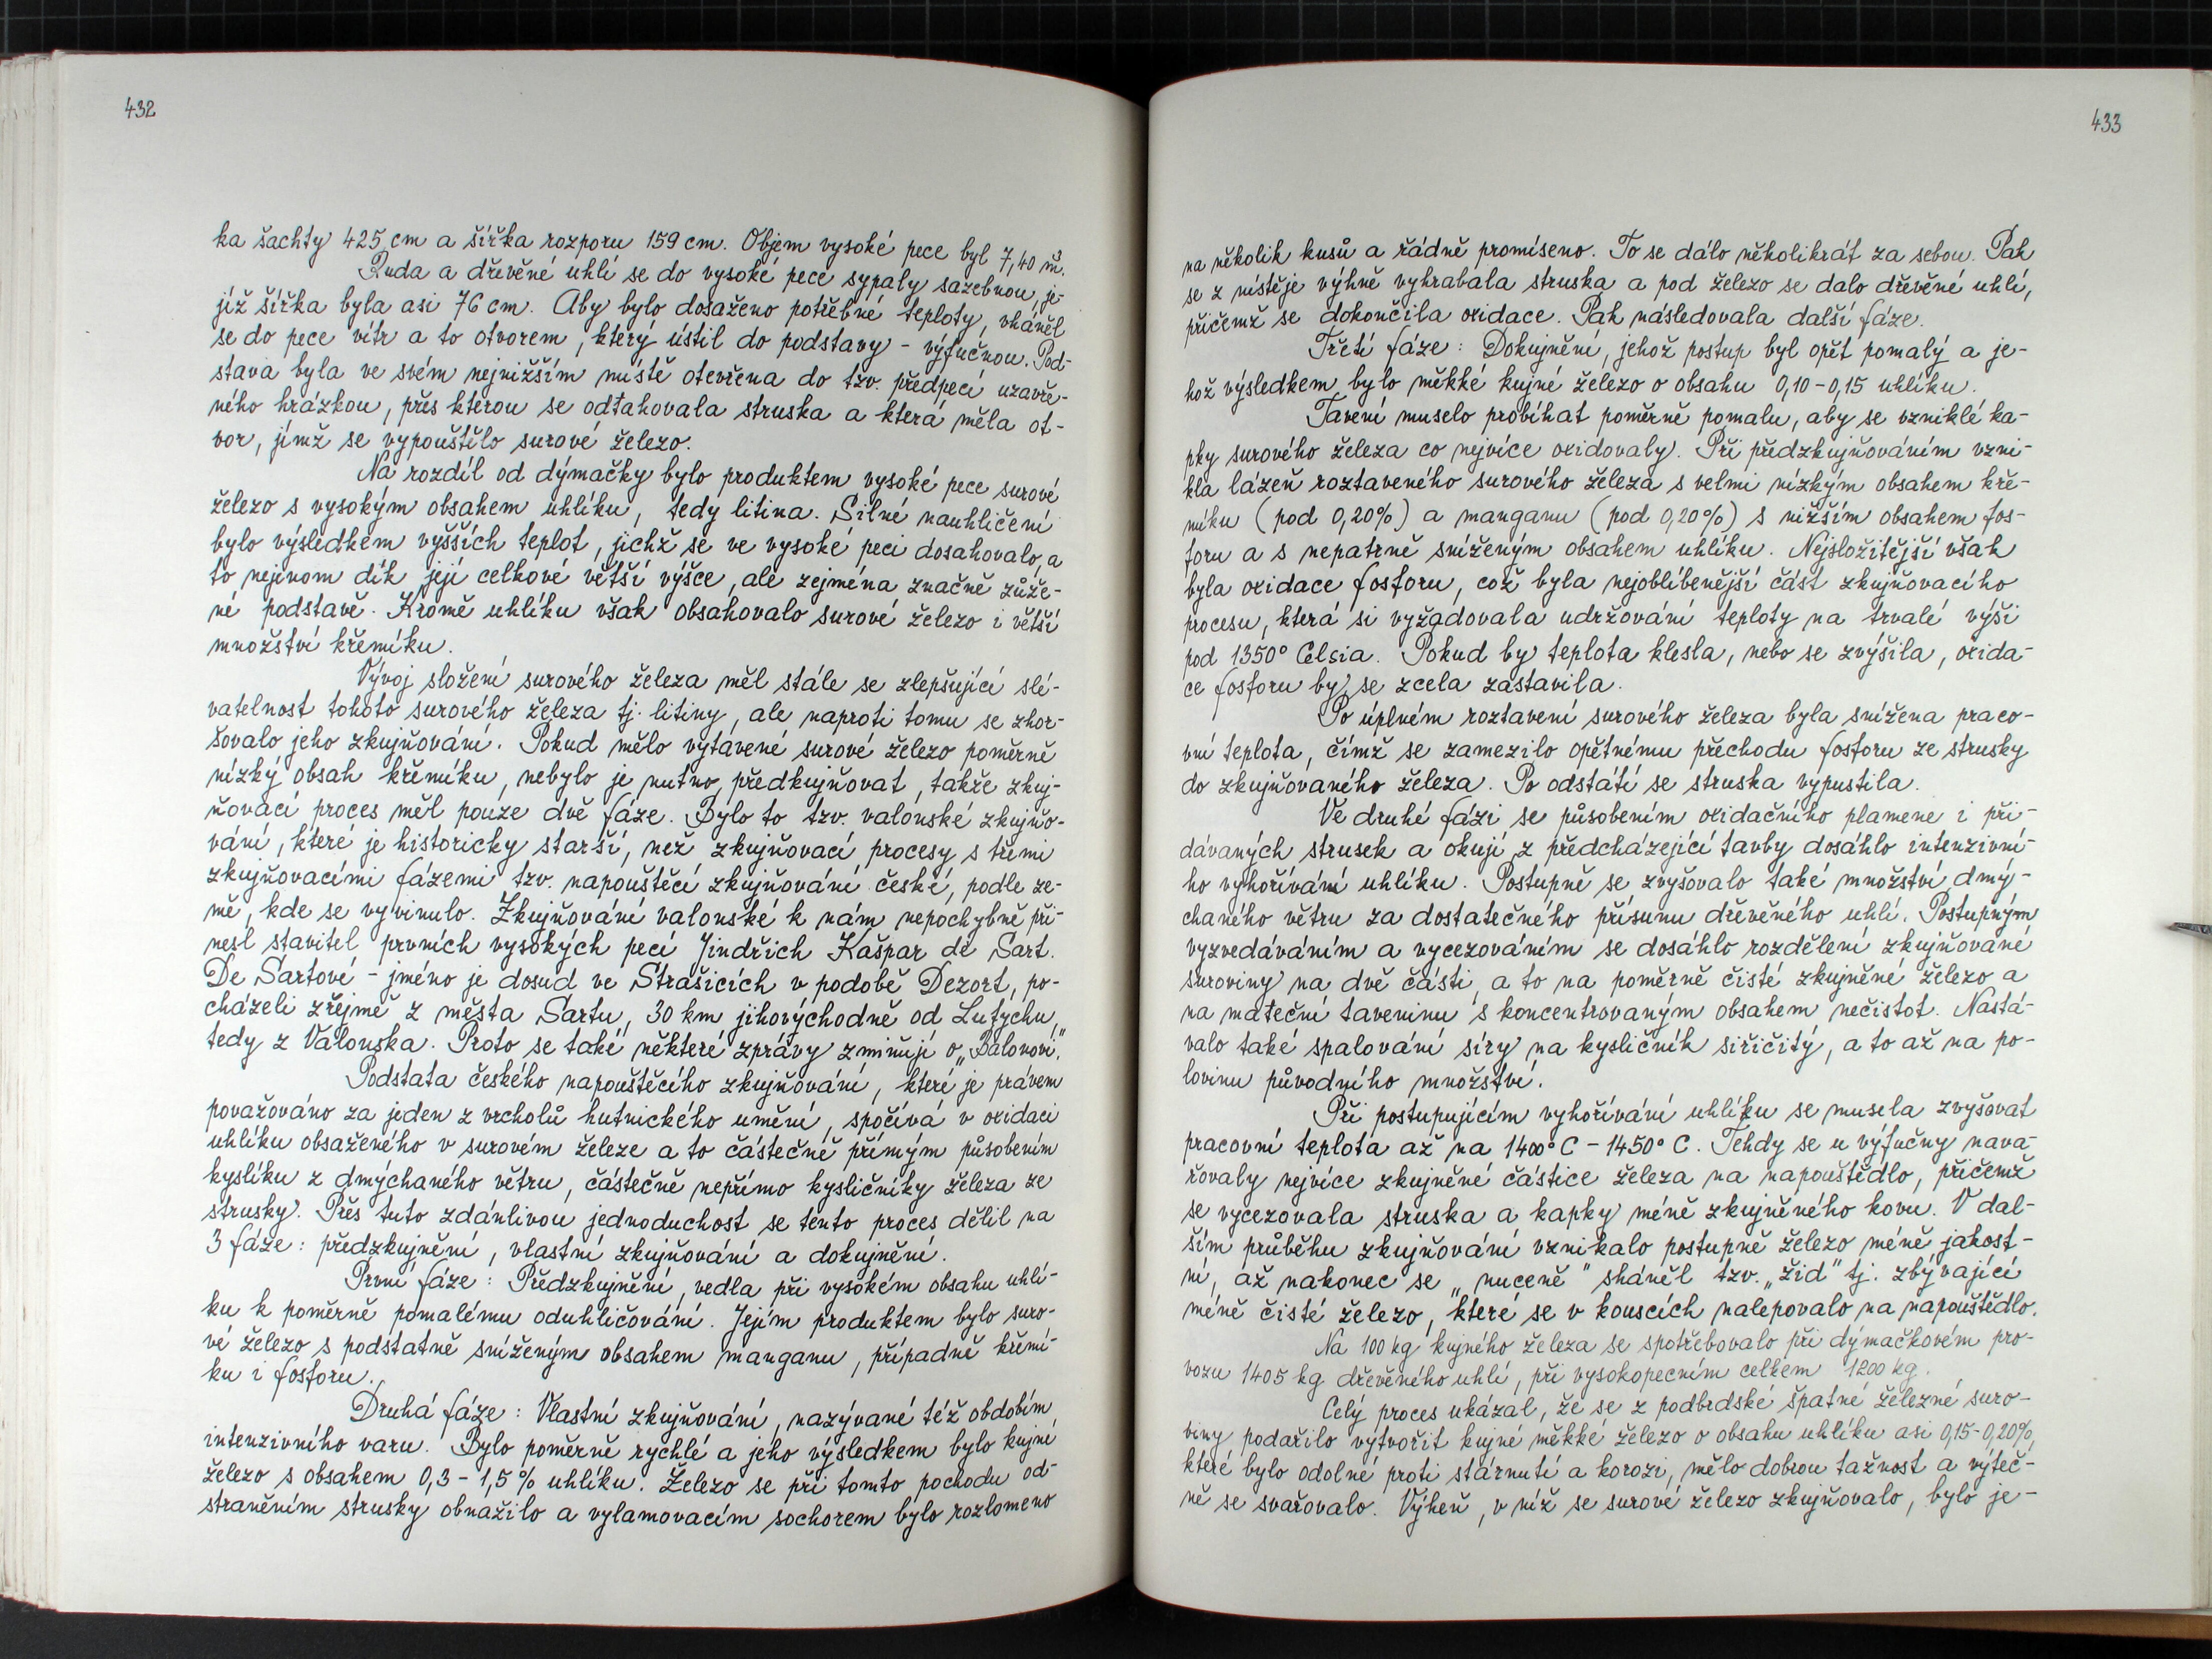 432
ka šachty 425 cm a šířka rozporu 159 cm. Objem vysoké pece byl 7,40 m³.
Ruda a dřevěné uhlí se do vysoké pece sypaly sazebnou, je-
jíž šířka byla asi 76 cm. Aby bylo dosaženo potřebné teploty, vháněl
se do pece vítr a to otvorem, který ústil do podstavy - výfučnou. Pod-
stava byla ve svém nejnižším místě otevřena do tzv. předpecí uzavře-
ného hrázkou, přes kterou se odťahovala struska a která měla ot-
vor, jímž se vypouštělo surové železo.
Na rozdíl od dýmačky bylo produktem vysoké pece surové
železo s vysokým obsahem uhlíku, tedy litina. Silné nauhličení
bylo výsledkem vyšších teplot, jichž se ve vysoké peci dosahovalo, a
to nejenom dík její celkové větší výšce, ale zejména značně zůže-
né podstavě. Kromě uhlíku však obsahovalo surové železo i větší
množství křemíku.
Vývoj složení surového železa měl stále se zlepšující slé-
vatelnost tohoto surového železa tj. litiny, ale naproti tomu se zhor-
šovalo jeho zkujňování. Pokud mělo vytavené surové železo poměrně
nízký obsah křemíku, nebylo je nutno předkujňovat, takže zkuj-
ňovací proces měl pouze dvě fáze. Bylo to tzv. valonské zkujňo-
vání, které je historicky starší, než zkujňovací procesy s třemi
zkujňovacími fázemi tzv. napouštěcí zkujňování české, podle ze-
mě, kde se vyvinulo. Zkujňování valonské k nám nepochybně při-
nesl stavitel prvních vysokých pecí Jindřich Kašpar de Sart.
De Sartové - jméno je dosud ve Strašicích v podobě Dezort, po-
cházeli zřejmě z města Sartu, 30 km jihovýchodně od Lutychu,
tedy z Valonska. Proto se také některé zprávy zmiňují o „Balonovi."
Podstata českého napouštěcího zkujňování, které je právem
považováno za jeden z vrcholů hutnického umění, spočívá v oxidaci
uhlíku obsaženého v surovém železe a to částečně přímým působením
kyslíku z dmýchaného větru, částečně nepřímo kysličníky železa ze
strusky. Přes tuto zdánlivou jednoduchost se tento proces dělil na
3 fáze: předzkujnění, vlastní zkujňování a dokujnění.
První fáze: Předzkujnění, vedla při vysokém obsahu uhlí-
ku k poměrně pomalému oduhličování. Jejím produktem bylo suro-
vé železo s podstatně sníženým obsahem manganu, případně křemí-
ku i fosforu.
Druhá fáze: Vlastní zkujňování, nazývané též obdobím
intenzivního varu. Bylo poměrně rychlé a jeho výsledkem bylo kujné
železo s obsahem 0,3 - 1,5 % uhlíku. Železo se při tomto pochodu od-
straněním strusky obnažilo a vylamovacím sochorem bylo rozlomeno
433
na několik kusů a řádně promíseno. To se dálo několikrát za sebou. Pak
se z nístěje výhně vyhrabala struska a pod železo se dalo dřevěné uhlí,
přičemž se dokončila oxidace. Pak následovala další fáze.
Třetí fáze: Dokujnění, jehož postup byl opět pomalý a je-
hož výsledkem bylo měkké kujné železo o obsahu 0,10 - 0,15 uhlíku.
Tavení muselo probíhat poměrně pomalu, aby se vzniklé ka-
pky surového železa co nejvíce oxidovaly. Při předzkujňováním vzni-
kla lázeň roztaveného surového železa s velmi nízkým obsahem kře-
míku (pod 0,20%) a manganu (pod 0,20%) s nižším obsahem fos-
foru a s nepatrně sníženým obsahem uhlíku. Nejsložitější však
byla oxidace fosforu, což byla nejoblíbenější část zkujňovacího
procesu, která si vyžadovala udržování teploty na trvalé výši
pod 1350° Celsia. Pokud by teplota klesla, nebo se zvýšila, oxida-
ce fosforu by se zcela zastavila.
Po úplném roztavení surového železa byla snížena praco-
vní teplota, čímž se zamezilo opětnému přechodu fosforu ze strusky
do zkujňovaného železa. Po odstátí se struska vypustila.
Ve druhé fázi se působením oxidačního plamene i při-
dávaných strusek a okují z předcházející tavby dosáhlo intenzivní-
ho vyhořívání uhlíku. Postupně se zvyšovalo také množství dmý-
chaného větru za dostatečného přísunu dřevěného uhlí. Postupným
vyzvedáváním a vycezováním se dosáhlo rozdělení zkujňované
suroviny na dvě části, a to na poměrně čisté zkujněné železo a
na mateční taveninu s koncentrovaným obsahem nečistot. Nastá-
valo také spalování síry na kysličník siřičitý, a to až na po-
lovinu původního množství.
Při postupujícím vyhořívání uhlíku se musela zvyšovat
pracovní teplota až na 1400° C - 1450° C. Tehdy se u výfučny nava-
řovaly nejvíce zkujněné částice železa na napouštědlo, přičemž
se vycezovala struska a kapky méně zkujněného kovu. V dal-
ším průběhu zkujňování vznikalo postupně železo méně jakost-
ní, až nakonec se „nuceně" sháněl tzv. „žid" tj. zbývající
méně čisté železo, které se v kouscích nalepovalo na napouštědlo.
Na 100 kg kujného železa se spotřebovalo při dýmačkovém pro-
vozu 1405 kg dřevěného uhlí, při vysokopecním celkem 1200 kg.
Celý proces ukázal, že se z podbrdské špatné železné suro-
viny podařilo vytvořit kujné měkké železo o obsahu uhlíku asi 0,15-0,20%,
které bylo odolné proti stárnutí a korozi, mělo dobrou tažnost a výteč-
ně se svařovalo. Výheň, v níž se surové železo zkujňovalo, bylo je-